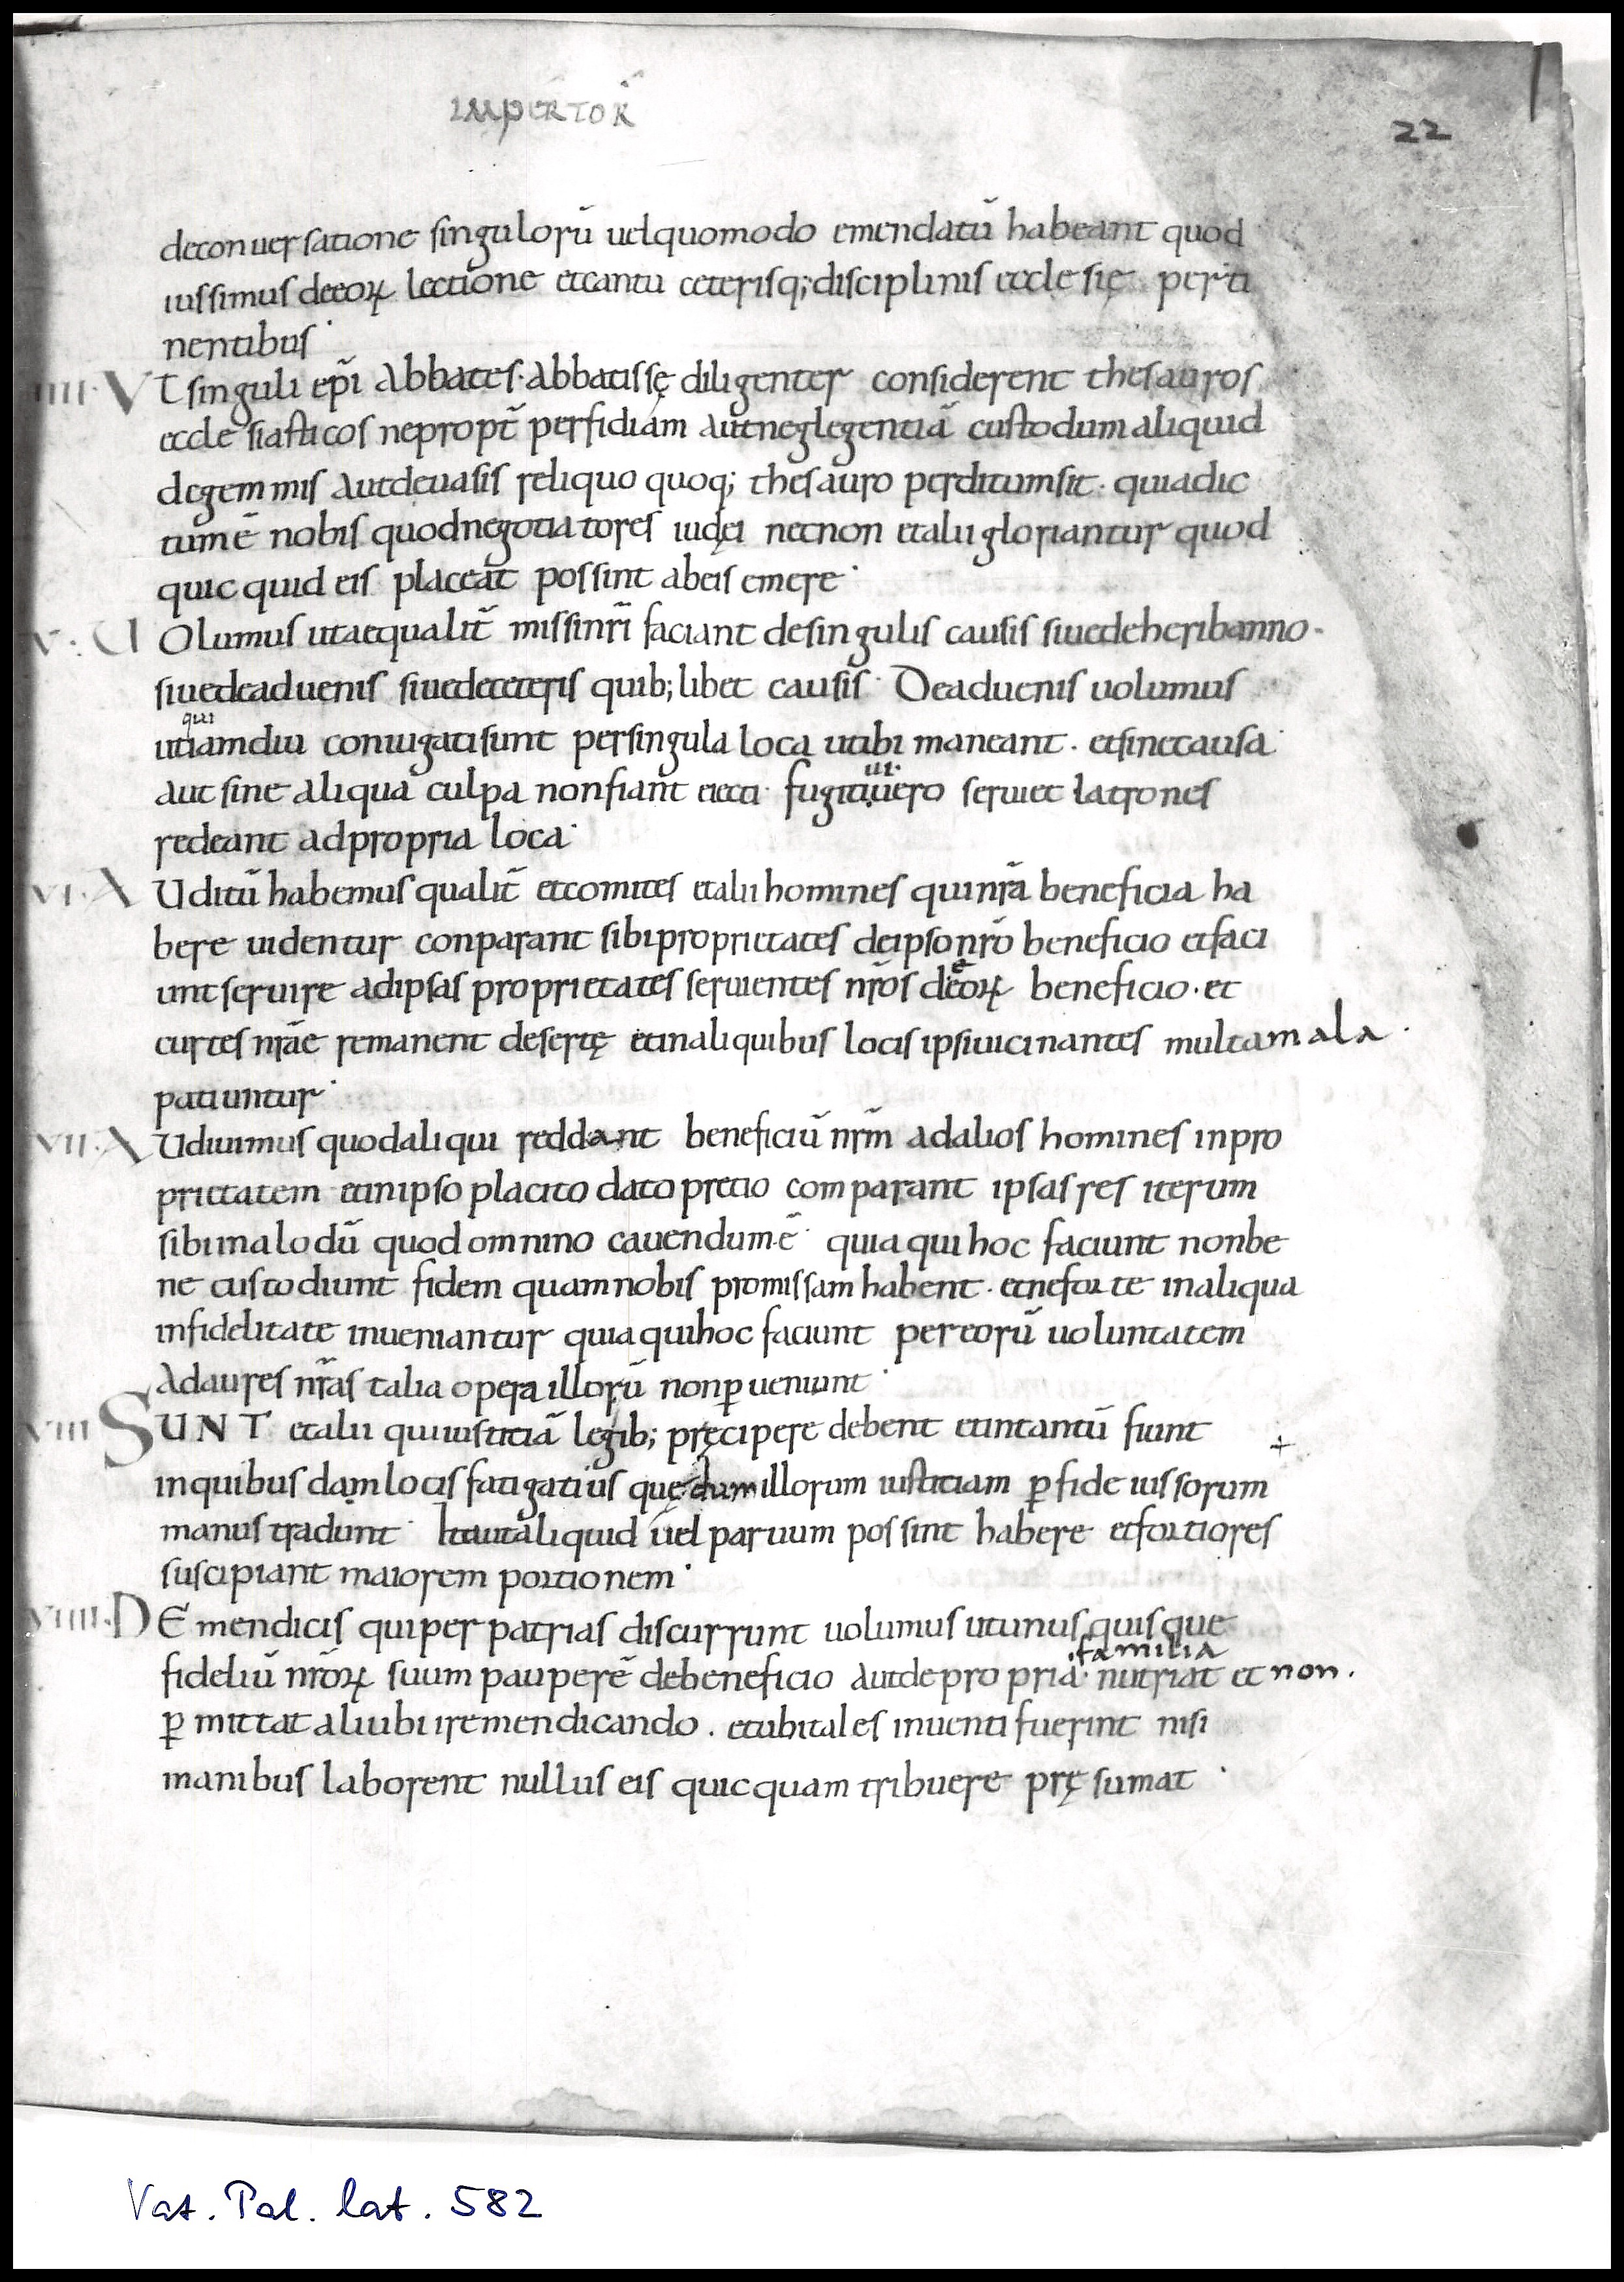 IMPERTOR̄
22
deconuersatione singulorū uelquomodo emendatū habeant quod
iussimus deeoꝝ lectione etcantu ceterisq; disciplinis ecclesię perti
nentibus·
IIII· VT singuli ep̄i abbates· abbatissę diligenter considerent thesauros
ecclesiasticos nepropt̄ perfidiam autneglegentiā custodum aliquid
degemmis autdeuasis reliquo quoq; thesauro perditumsit· quiadic
tumē nobis quodnegotiatores iudęi necnon etalii gloriantur quod
quicquid eis placeat possint abeis emere·
V· UOlumus utaequalit̄ missinr̄i faciant desingulis causis siuedeheribanno·
siuedeaduenis siuedeceteris quib; libet causis· Deaduenis uolumus
qui
utiamdiu coniugatisunt persingula loca utibi maneant· etsinecausa·
aut sine aliqua culpa nonfiant eiecti· fugitiuero seruiet latrones
ui·
redeant adpropria loca·
VI· AUditū habemus qualit̄ etcomites etalii homines quinr̄a beneficia ha
bere uidentur conparant sibiproprietates deipsonr̄o beneficio etfaci
untseruire adipsas proprietates seruientes nr̄os deeoꝝ beneficio· et
curtes nr̄ae remanent desertę etinaliquibus locis ipsiuicinantes multamala·
patiuntur·
VII· AUdiuimus quodaliqui reddant beneficiū nr̄m adalios homines inpro
prietatem etinipso placito dato precio comparant ipsas res iterum
sibimalodū quod omnino cauendum·ē· quia qui hoc faciunt nonbe
ne custodiunt fidem quamnobis promissam habent· etneforte inaliqua
infidelitate inueniantur quiaquihoc faciunt per eorū uoluntatem
Adaures nr̄as talia opera illorū nonꝑueniunt·
VIII SUNT etalii quiiusticiā legib; pręcipere debent etintantū fiunt
+
inquibusdam locis fatigatius quędum illorum iusticiam ꝑfideiussorum
manustradunt· Itautaliquid uel paruum possint habere etfortiores
suscipiant maiorem portionem·
VIIII· DE mendicis quiper patrias discurrunt uolumus utunusquisque
familia
fideliū nr̄oꝝ suum pauperē debeneficio autdepropria· nutriat et non·
ꝑmittat aliubi iremendicando· etubitales inuenti fuerint nisi
manibus laborent nullus eis quicquam tribuere pręsumat·
Vat. Pal. lat. 582